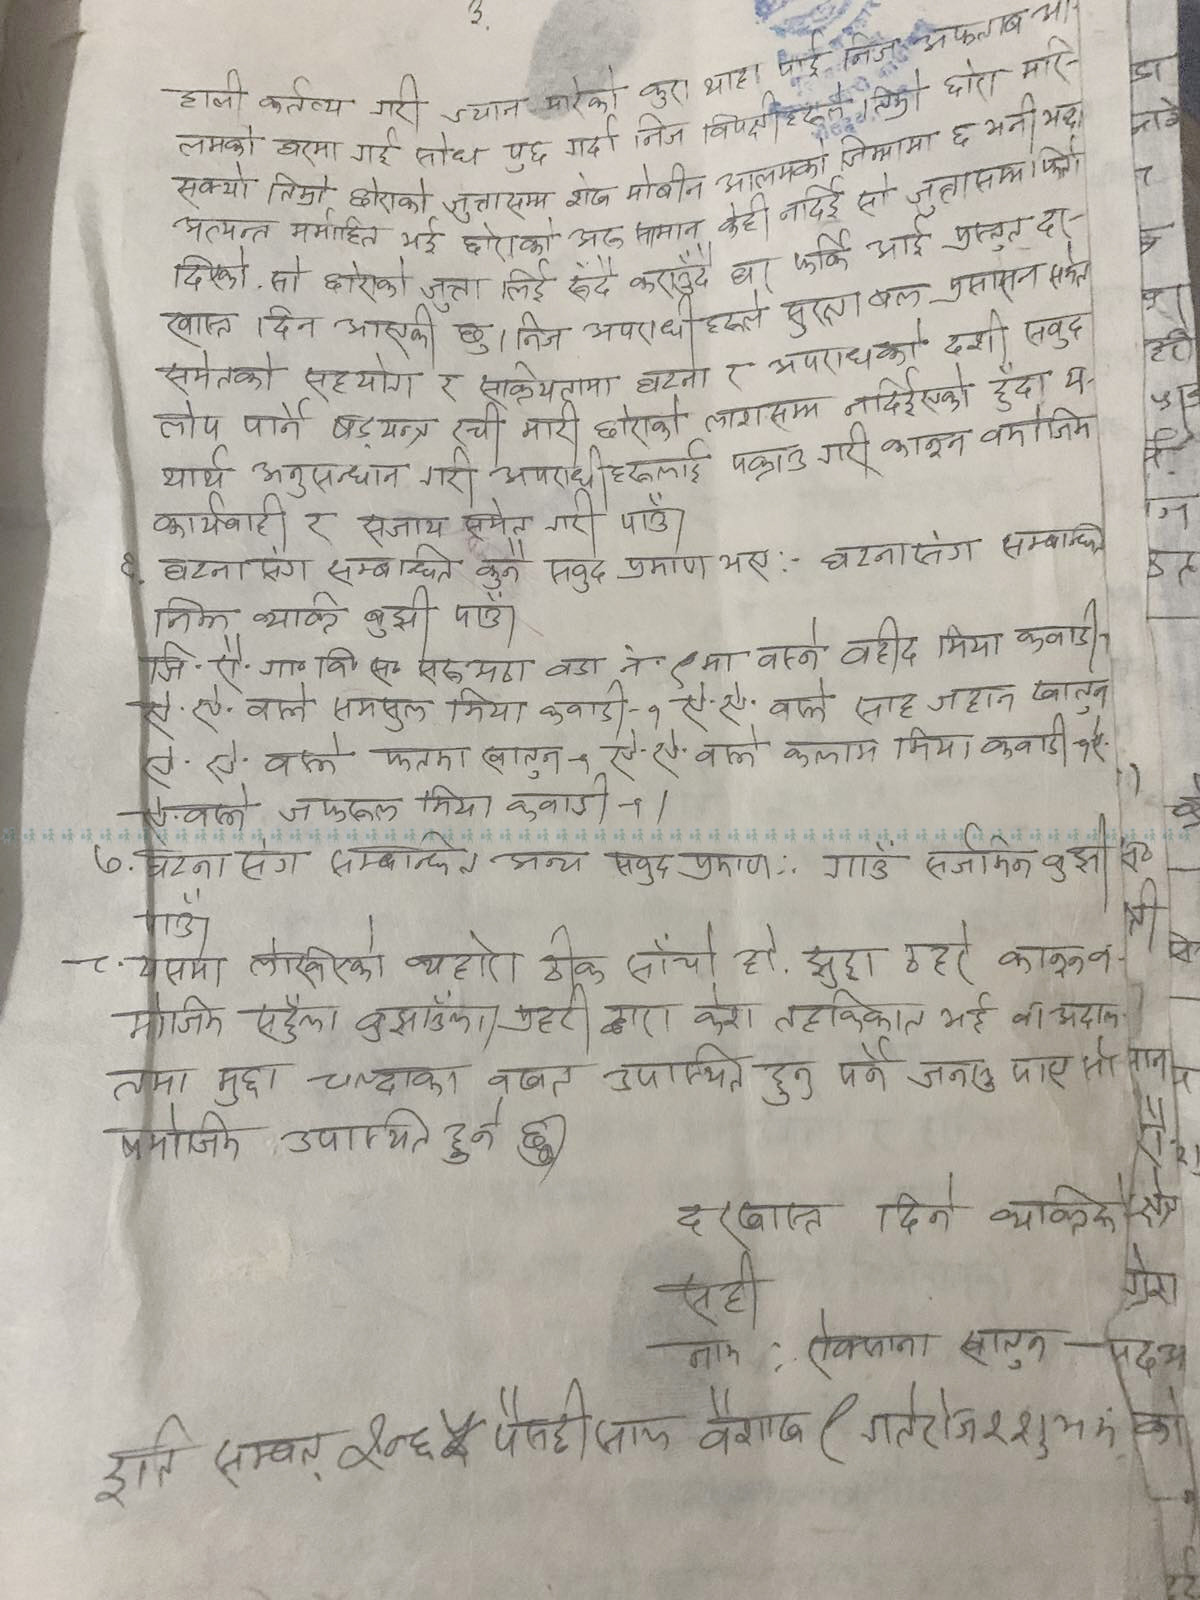 ३.
हाली कर्तव्य गरी ज्यान मारेको कुरा थाहा पाई निज अफताब आ-
लमको घरमा गई सोध पुछ गर्दा निज विपक्षीहरूले तिम्रो छोरा मारि-
सक्यो तिम्रो छोराको जुत्तासम्म शेख मोबीन आलमको जिम्मामा छ भनी भन्दा
अत्यन्त मर्माहित भई छोराको अरू सामान केही नदिई सो जुत्तासम्म फिर्ता
दिएको. सो छोराको जुत्ता लिई रूँदै कराउँदै घर फर्कि आई प्रस्तुत दर-
खास्त दिन आएकी छु। निज अपराधीहरूले सुरक्षा बल प्रसासन समेत
समेतको सहयोग र सक्रियतामा घटना र अपराधको दशी सवुद
लोप पार्ने षड्यन्त्र रची मारी छोराको लाशसम्म नदिईएको हुँदा य-
थार्थ अनुसन्धान गरी अपराधीहरूलाई पक्राउ गरी कानून वमोजिम
कार्यवाही र सजाय समेत गरी पाउँ।
६. घटनासंग सम्बान्धित कुनै सवुद प्रमाण भए :- घटनासंग सम्बान्धित
निम्न व्याक्ति बुझी पाउँ।
जि. रौ. गा. वि स. वडा नं. ९ मा वस्ने वहीद मिया कवाडी-१
ऐ. ऐ. वस्ने समसुल मिया कवाडी-१ ऐ. ऐ. वस्ने साह जहान खातुन
ऐ. ऐ. वस्ने फतमा खातुन-१ ऐ. ऐ. वस्ने कलाम मिया कवाडी-१ ऐ.
ऐ. वस्ने जफरूल मिया कवाडी-१।
७. घटना संग सम्बान्धित अन्य सवुद प्रमाण :- गाउँ सर्जमिन बुझी
पाउँ।
८. यसमा लेखिएको व्यहोरा ठीक साँचो हो. झुट्टा ठहरे कानून व-
मोजिम सहुँला बुझाउँला। प्रहरी द्वारा केश तहकिकात भई वा अदाल-
तमा मुद्दा चल्दाका वखत उपास्थित हुनु पर्ने जनाउ पाए सो
बमोजिम उपास्थित हुने छु।
दरखास्त दिने व्याक्तिको
सही
नाम :- रोक्साना खातुन
इति सम्वत् २०६५ पैसठ्ठी साल वैशाख ९ गते रोज २ शुभम्